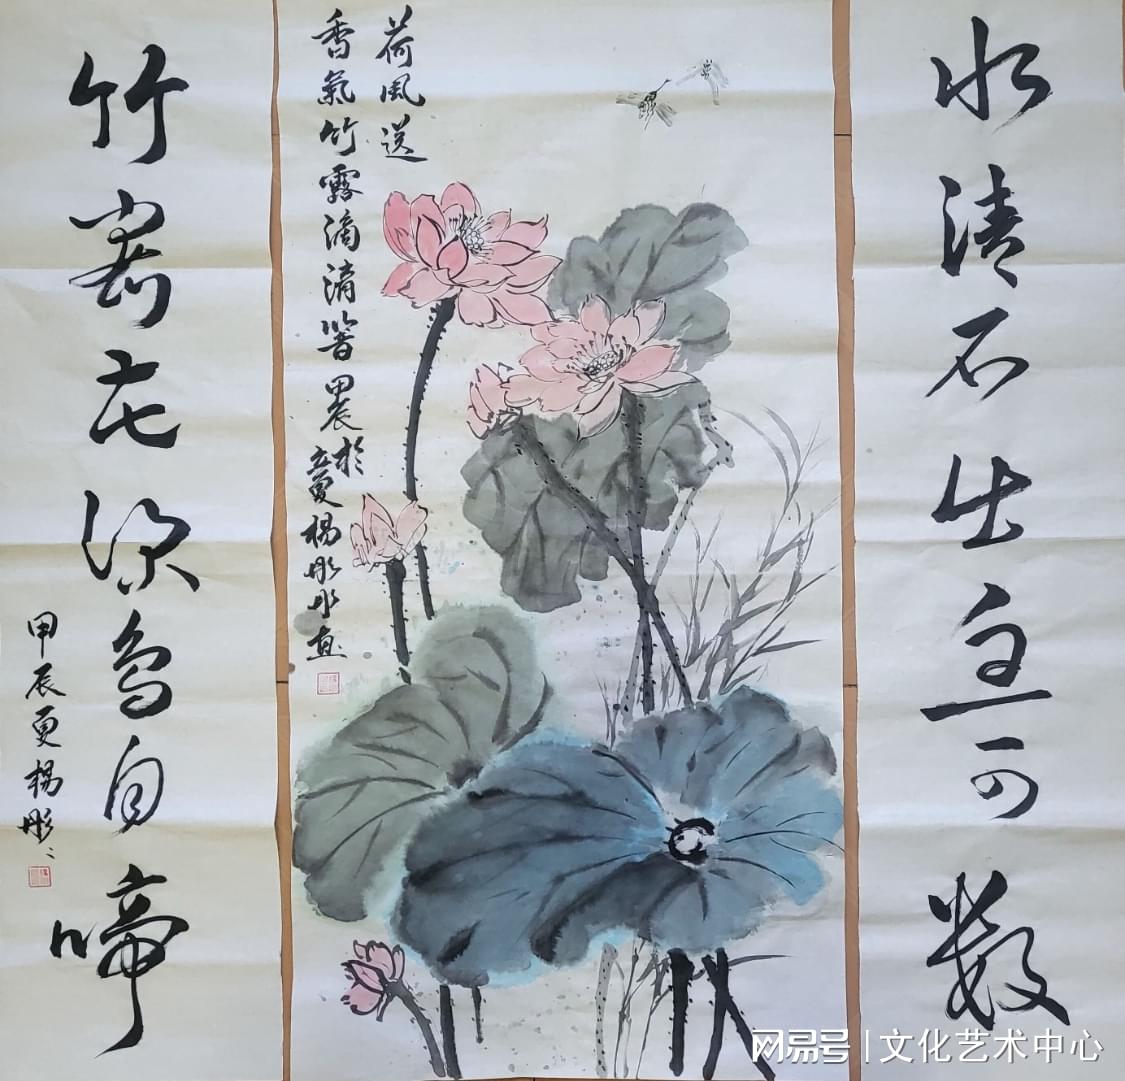 水清石出魚可數
荷風送
香氣竹露滴清響甲辰於
立夏楊彤彤畫
竹密花深鳥自啼
甲辰夏楊彤彤
网易号 | 文化艺术中心